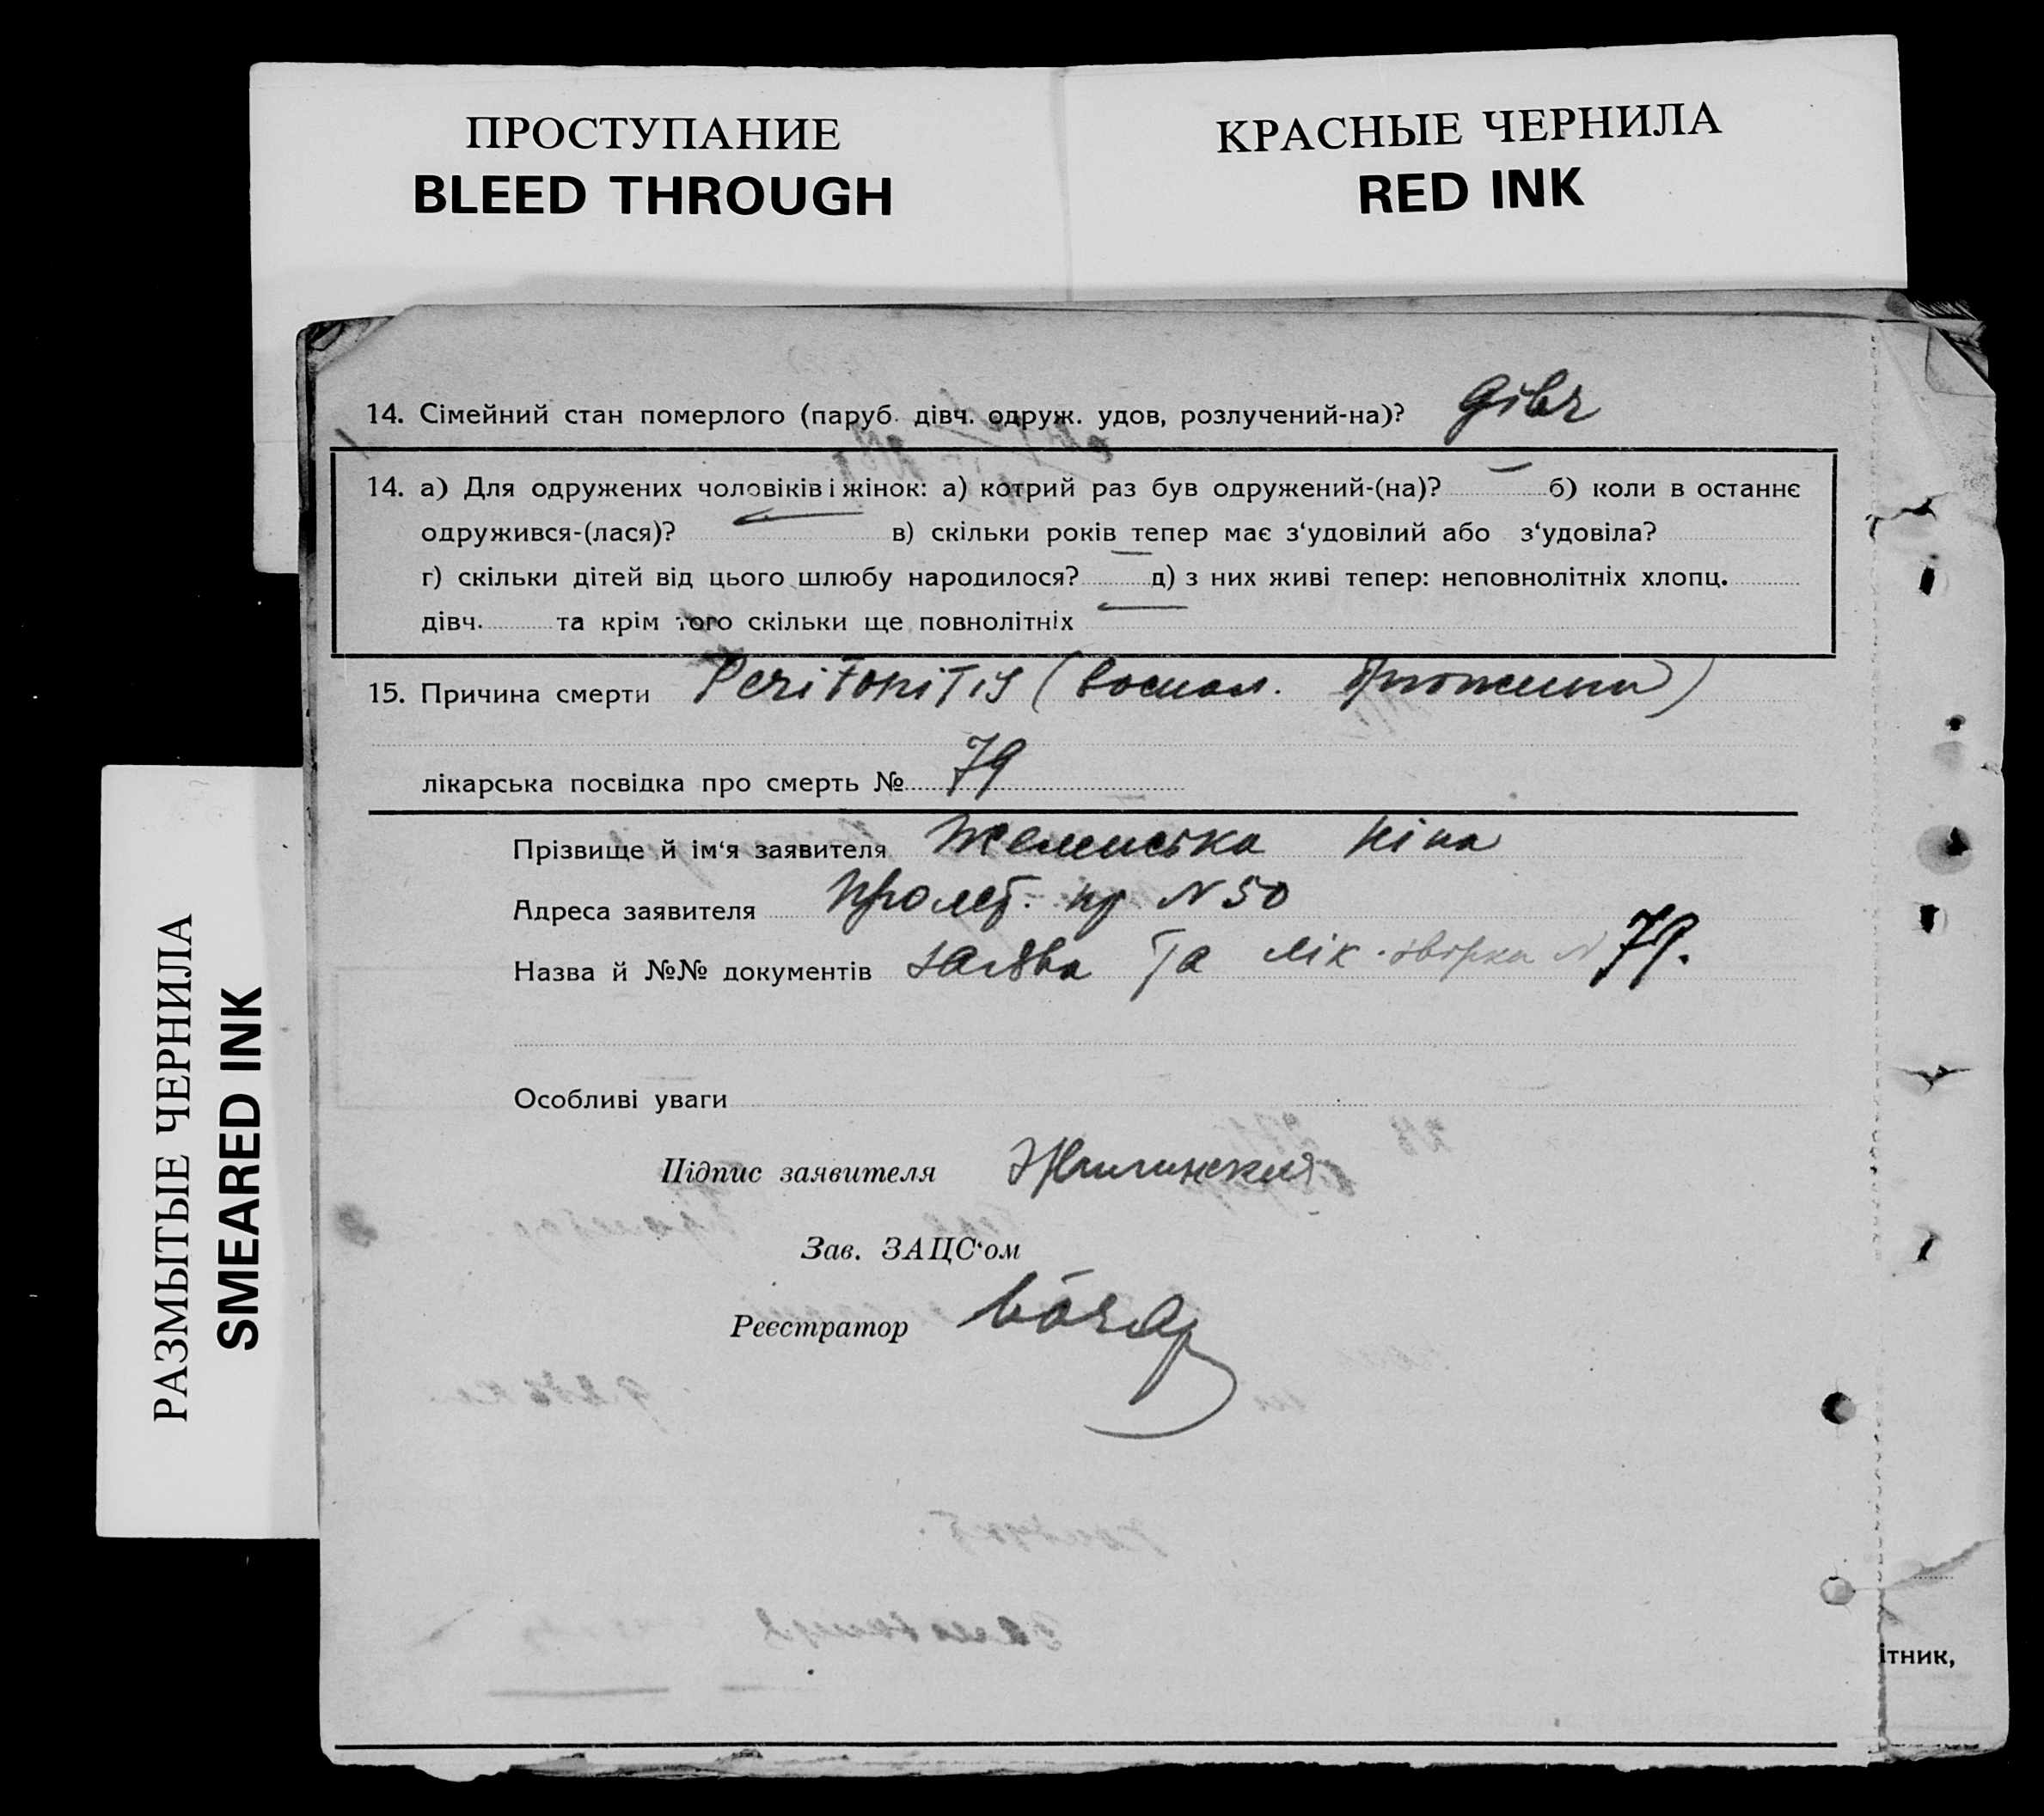 ПРОСТУПАНИЕ
BLEED THROUGH
КРАСНЫЕ ЧЕРНИЛА
RED INK
РАЗМЫТЫЕ ЧЕРНИЛА
SMEARED INK
14. Сімейний стан померлого (паруб. дівч. одруж. удов, розлучений-на)? дівч
14. а) Для одружених чоловіків і жінок: а) котрий раз був одружений-(на)? — б) коли в останнє
одружився-(лася)? — в) скільки років тепер має з‘удовілий або з‘удовіла?
г) скільки дітей від цього шлюбу народилося? — д) з них живі тепер: неповнолітніх хлопц.
дівч. та крім того скільки ще повнолітніх —
15. Причина смерти Peritonitis (воспал. брюшины)
лікарська посвідка про смерть № 79
Прізвище й ім‘я заявителя Ніна
Адреса заявителя Пролет. N 50
Назва й №№ документів заява та лік. N 79.
Особливі уваги
Підпис заявителя
Зав. ЗАЦС‘ом
Реєстратор
ітник,